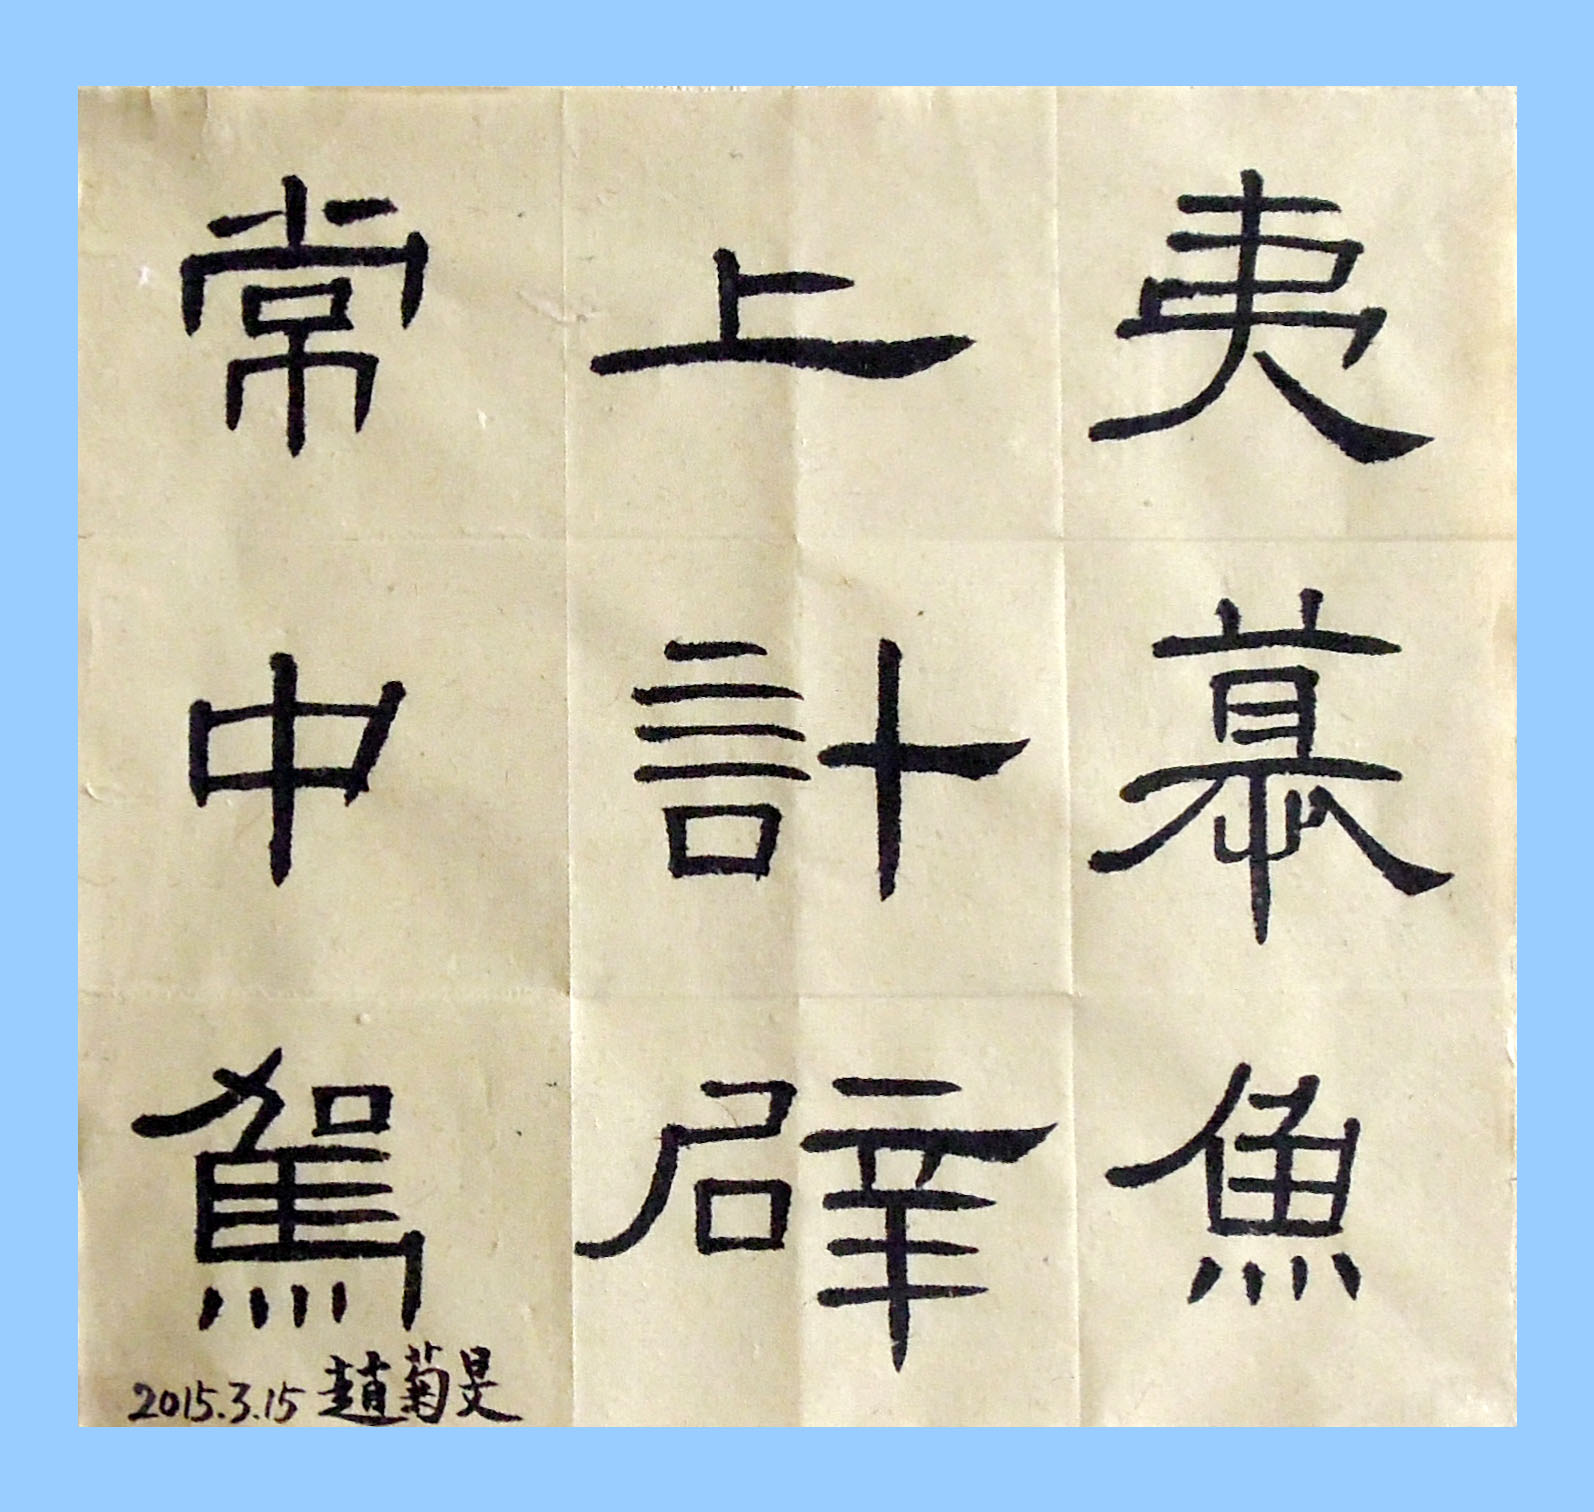 夷慕魚
上計辟
常中駕
2015.3.15 趙菊旻